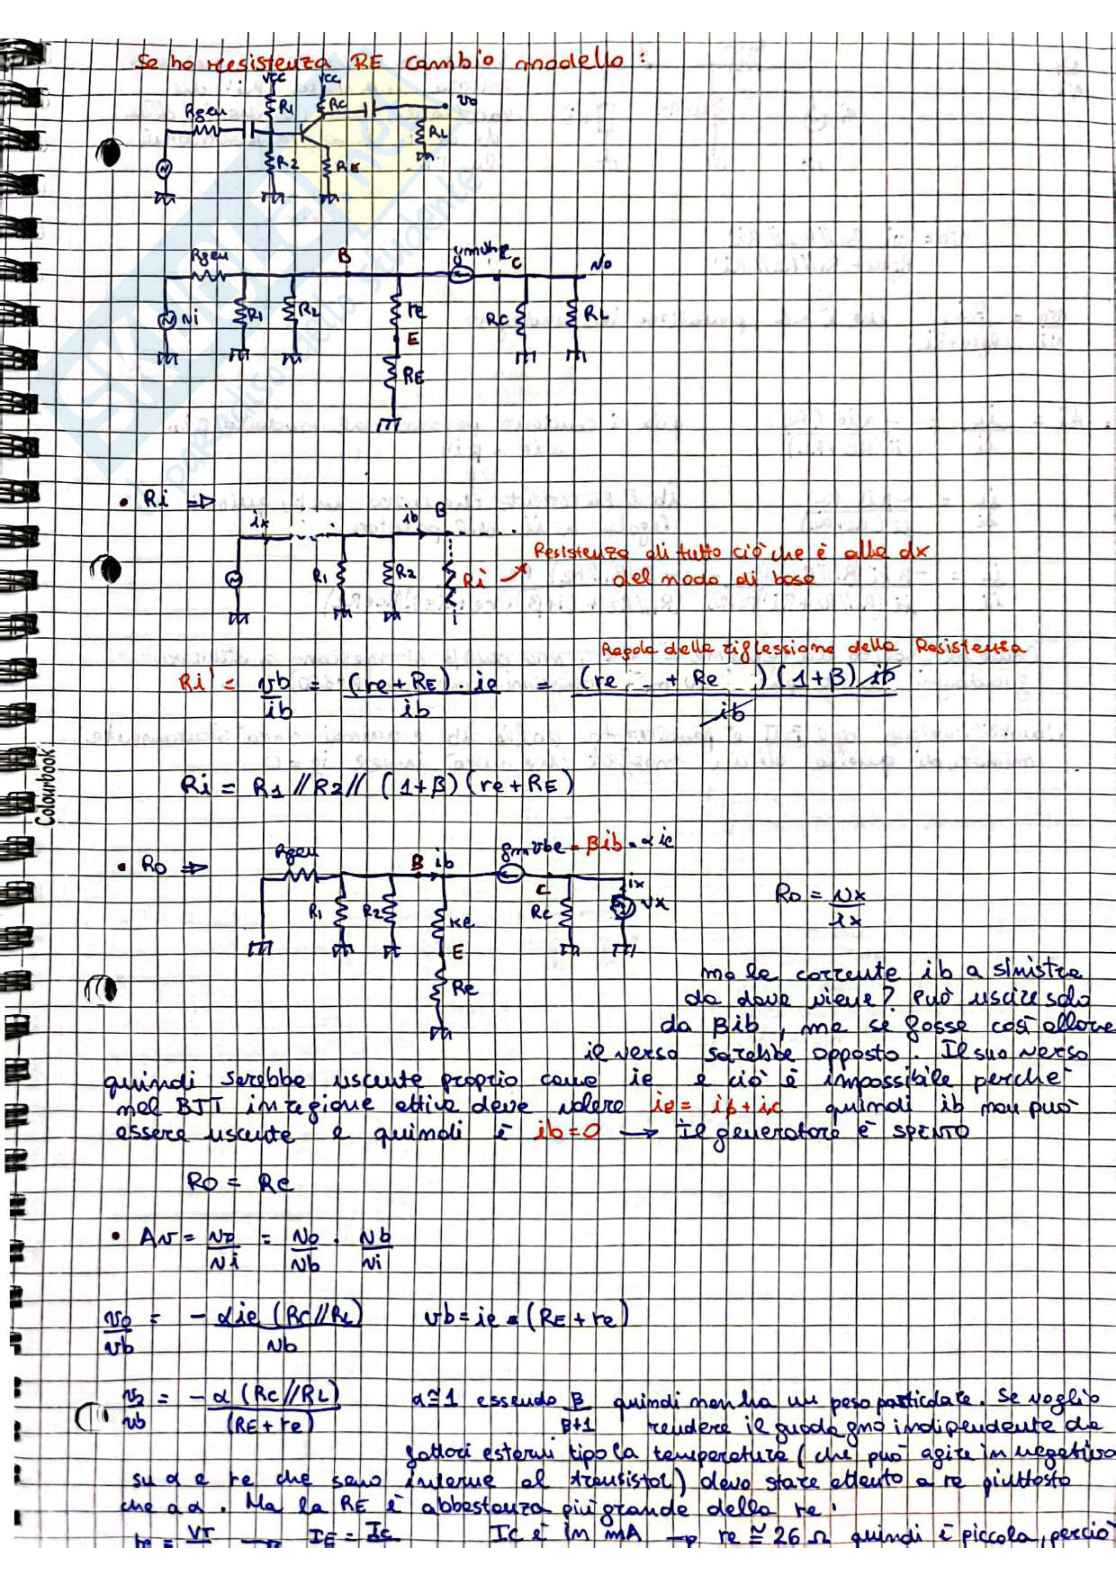 Se ho resistenza RE cambio modello:
Vcc Vcc
Rgen R1 RC vo
RL
R2 RE
Rgen B gmvbe C vo
vi R1 R2 re RC RL
E
RE
• Ri ⇒
ix ib B
R1 R2 Ri'
Resistenza di tutto ciò che è alla dx
del nodo di base
Regola della riflessione della Resistenza
Ri' = vb/ib = (re+RE)·ie/ib = (re + Re)(1+β) ib/ib
Ri = R1 // R2 // (1+β)(re+RE)
Colourbook
• Ro ⇒
Rgen B ib gmvbe = βib = αie
R1 R2 re C Rc ix vx
E
Re
Ro = vx/ix
ma la corrente ib a sinistra
da dove viene? Può uscire solo
da βib, ma se fosse così allora
il verso sarebbe opposto. Il suo verso
quindi sarebbe uscente proprio come ie e ciò è impossibile perché
nel BJT in regione attiva deve valere ie = ib + ic quindi ib non può
essere uscente e quindi è ib=0 → Il generatore è SPENTO
Ro = Rc
• Av = vo/vi = vo/vb · vb/vi
vo/vb = - αie (RC//RL)/vb vb = ie • (RE + re)
vo/vb = - α (RC//RL)/(RE + re) α≅1 essendo β/β+1 quindi non ha un peso particolare. Se voglio
rendere il guadagno indipendente da
fattori esterni tipo la temperatura (che può agire in negativo
su α e re che sono interne al transistor) devo stare attento a re piuttosto
che ad α. Ma la RE è abbastanza più grande della re:
re = VT → IE = Ic Ic è in mA → re ≅ 26 Ω quindi è piccola, perciò